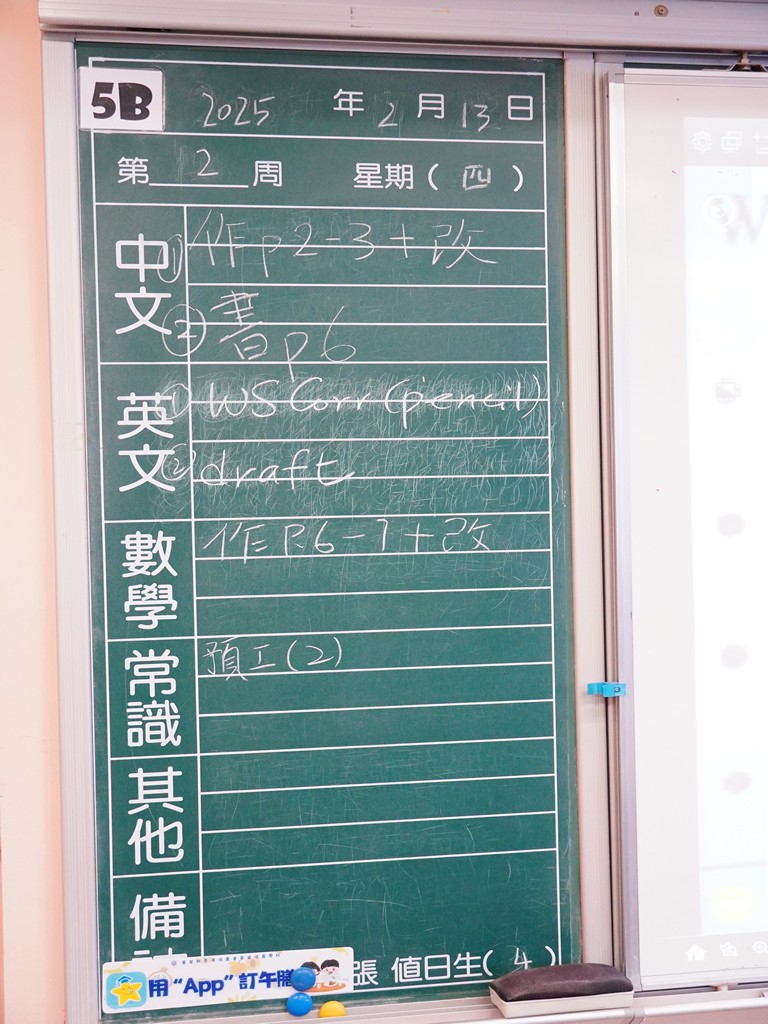 5B 2025 年 2 月 13 日
第 2 周 星期 ( 四 )
中文
① 作 p2-3+改
② 書 p6
英文
① WS Corr (pencil)
② draft
數學
作 P.6-7+改
常識
預工(2)
其他
備
張 值日生( 4 )
用 "App" 訂午膳
W